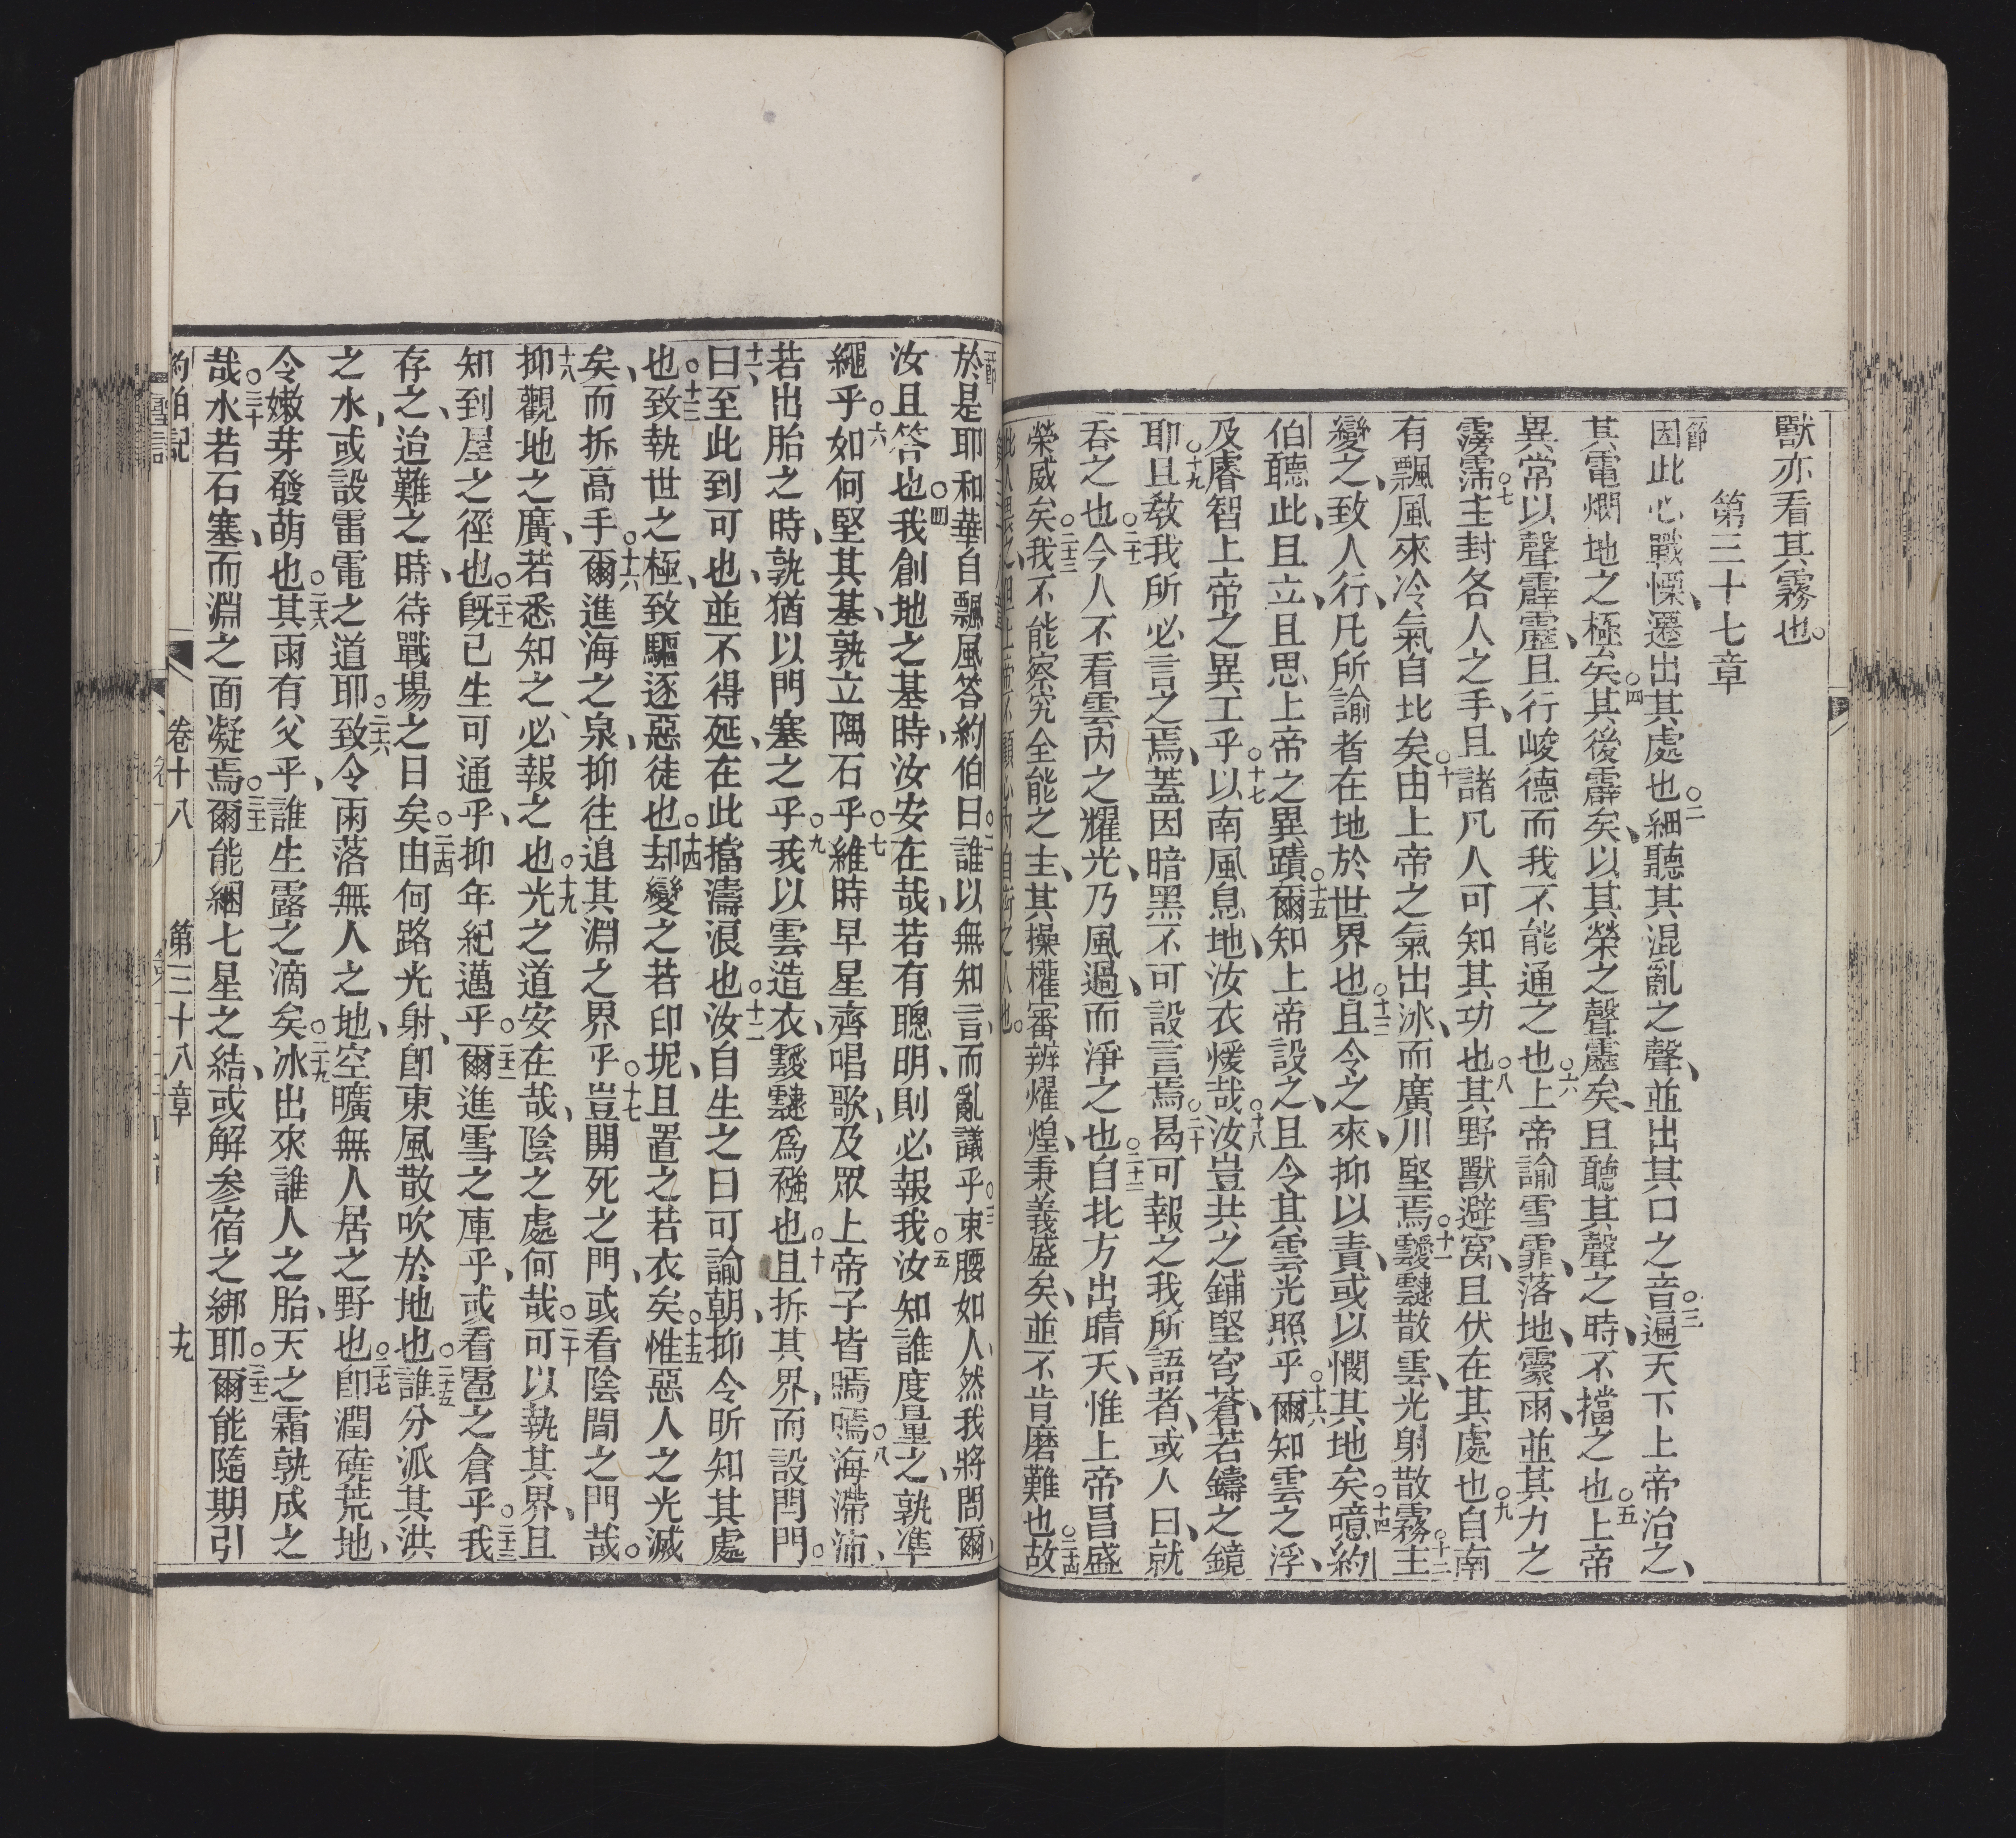 獸亦看其霧也。
第三十七章
節因此心戰慄、遷出其處也○二細聽其混亂之聲、並出其口之音○三遍天下上帝治之、
其電爓地之極矣○四其後霹矣、以其榮之聲靂矣、且聽其聲之時、不擋之也○五上帝
異常以聲霹靂、且行峻德而我不能通之也○六上帝諭雪霏落地、霥雨、並其力之
霶霈○七主封各人之手、且諸凡人可知其功也○八其野獸避窩、且伏在其處也○九自南
有飄風來冷氣自北矣○十由上帝之氣出冰、而廣川堅焉○十一靉靆散雲、光射散霧○十二主
變之、致人行、凡所諭者在地於世界也○十三且令之來、抑以責、或以憫其地矣○十四噫約
伯聽此、且立、且思上帝之異蹟○十五爾知上帝設之、且令其雲光照乎○十六爾知雲之浮、
及睿智上帝之異工乎○十七以南風息地、汝衣煖哉○十八汝豈共之鋪堅穹蒼、若鑄之鏡
耶○十九且教我所必言之焉、蓋因暗黑不可設言焉○二十曷可報之我所語者、或人曰、就
吞之也○二十一今人不看雲內之耀光、乃風過、而淨之也○二十二自北方出晴天、惟上帝昌盛
榮威矣○二十三我不能察究全能之主、其操權審辨燿煌、秉義盛矣、並不肯磨難也○二十四故
節於是耶和華自飄風答約伯曰○二誰以無知言、而亂議乎○三束腰如人、然我將問爾、
汝且答也○四我創地之基時、汝安在哉、若有聰明、則必報我○五汝知誰度量之、孰準
繩乎○六如何堅其基、孰立隅石乎○七維時早星齊唱歌、及眾上帝子皆嘕嘕○八海滯沛、
若出胎之時、孰猶以門塞之乎○九我以雲造衣、靉靆爲襁也○十且拆其界、而設閂門。
十一、曰至此到可也、並不得延、在此擋濤浪也○十二汝自生之日可諭朝、抑令昕知其處
也○十三致執世之極、致驅逐惡徒也○十四却變之若印坭、且置之若衣矣○十五惟惡人之光滅
矣、而拆高手○十六爾進海之泉、抑往追其淵之界乎○十七豈開死之門、或看陰間之門哉。
十八抑觀地之廣、若悉知之、必報之也○十九光之道安在哉、陰之處何哉○二十可以執其界、且
知到屋之徑也○二十一旣已生可通乎、抑年紀邁乎○二十二爾進雪之庫乎、或看雹之倉乎○二十三我
存之、迨難之時、待戰場之日矣○二十四由何路光射、卽東風散吹於地也○二十五誰分派其洪
之水、或設雷電之道耶○二十六致令雨落無人之地、空曠無人居之野也○二十七卽潤磽荒地、
令嫩芽發萌也○二十八其雨有父乎、誰生露之滴矣○二十九冰出來誰人之胎、天之霜孰成之
哉○三十水若石塞、而淵之面凝焉○三十一爾能綑七星之結、或解參宿之綁耶○三十二爾能隨期引
約伯記　卷十八　第三十八章　十九